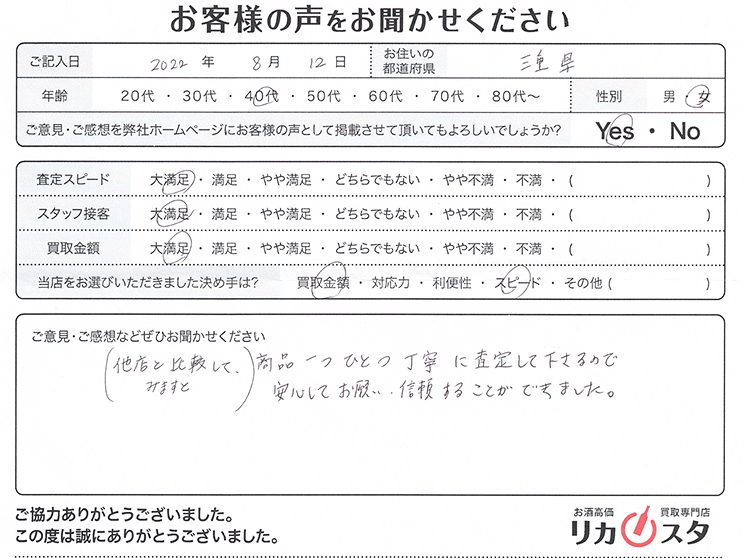 お客様の声をお聞かせください
ご記入日 2022 年 8 月 12 日 お住いの都道府県 三重県
年齢 20代 ・ 30代 ・ 40代 ・ 50代 ・ 60代 ・ 70代 ・ 80代〜 性別 男 ・ 女
ご意見・ご感想を弊社ホームページにお客様の声として掲載させて頂いてもよろしいでしょうか? Yes ・ No
査定スピード 大満足 ・ 満足 ・ やや満足 ・ どちらでもない ・ やや不満 ・ 不満 ・ ( )
スタッフ接客 大満足 ・ 満足 ・ やや満足 ・ どちらでもない ・ やや不満 ・ 不満 ・ ( )
買取金額 大満足 ・ 満足 ・ やや満足 ・ どちらでもない ・ やや不満 ・ 不満 ・ ( )
当店をお選びいただきました決め手は? 買取金額 ・ 対応力 ・ 利便性 ・ スピード ・ その他 ( )
ご意見・ご感想などぜひお聞かせください
(他店と比較して、みますと)
商品一つひとつ丁寧に査定して下さるので
安心してお願い・信頼することができました。
ご協力ありがとうございました。
この度は誠にありがとうございました。
お酒高価 買取専門店
リカスタ